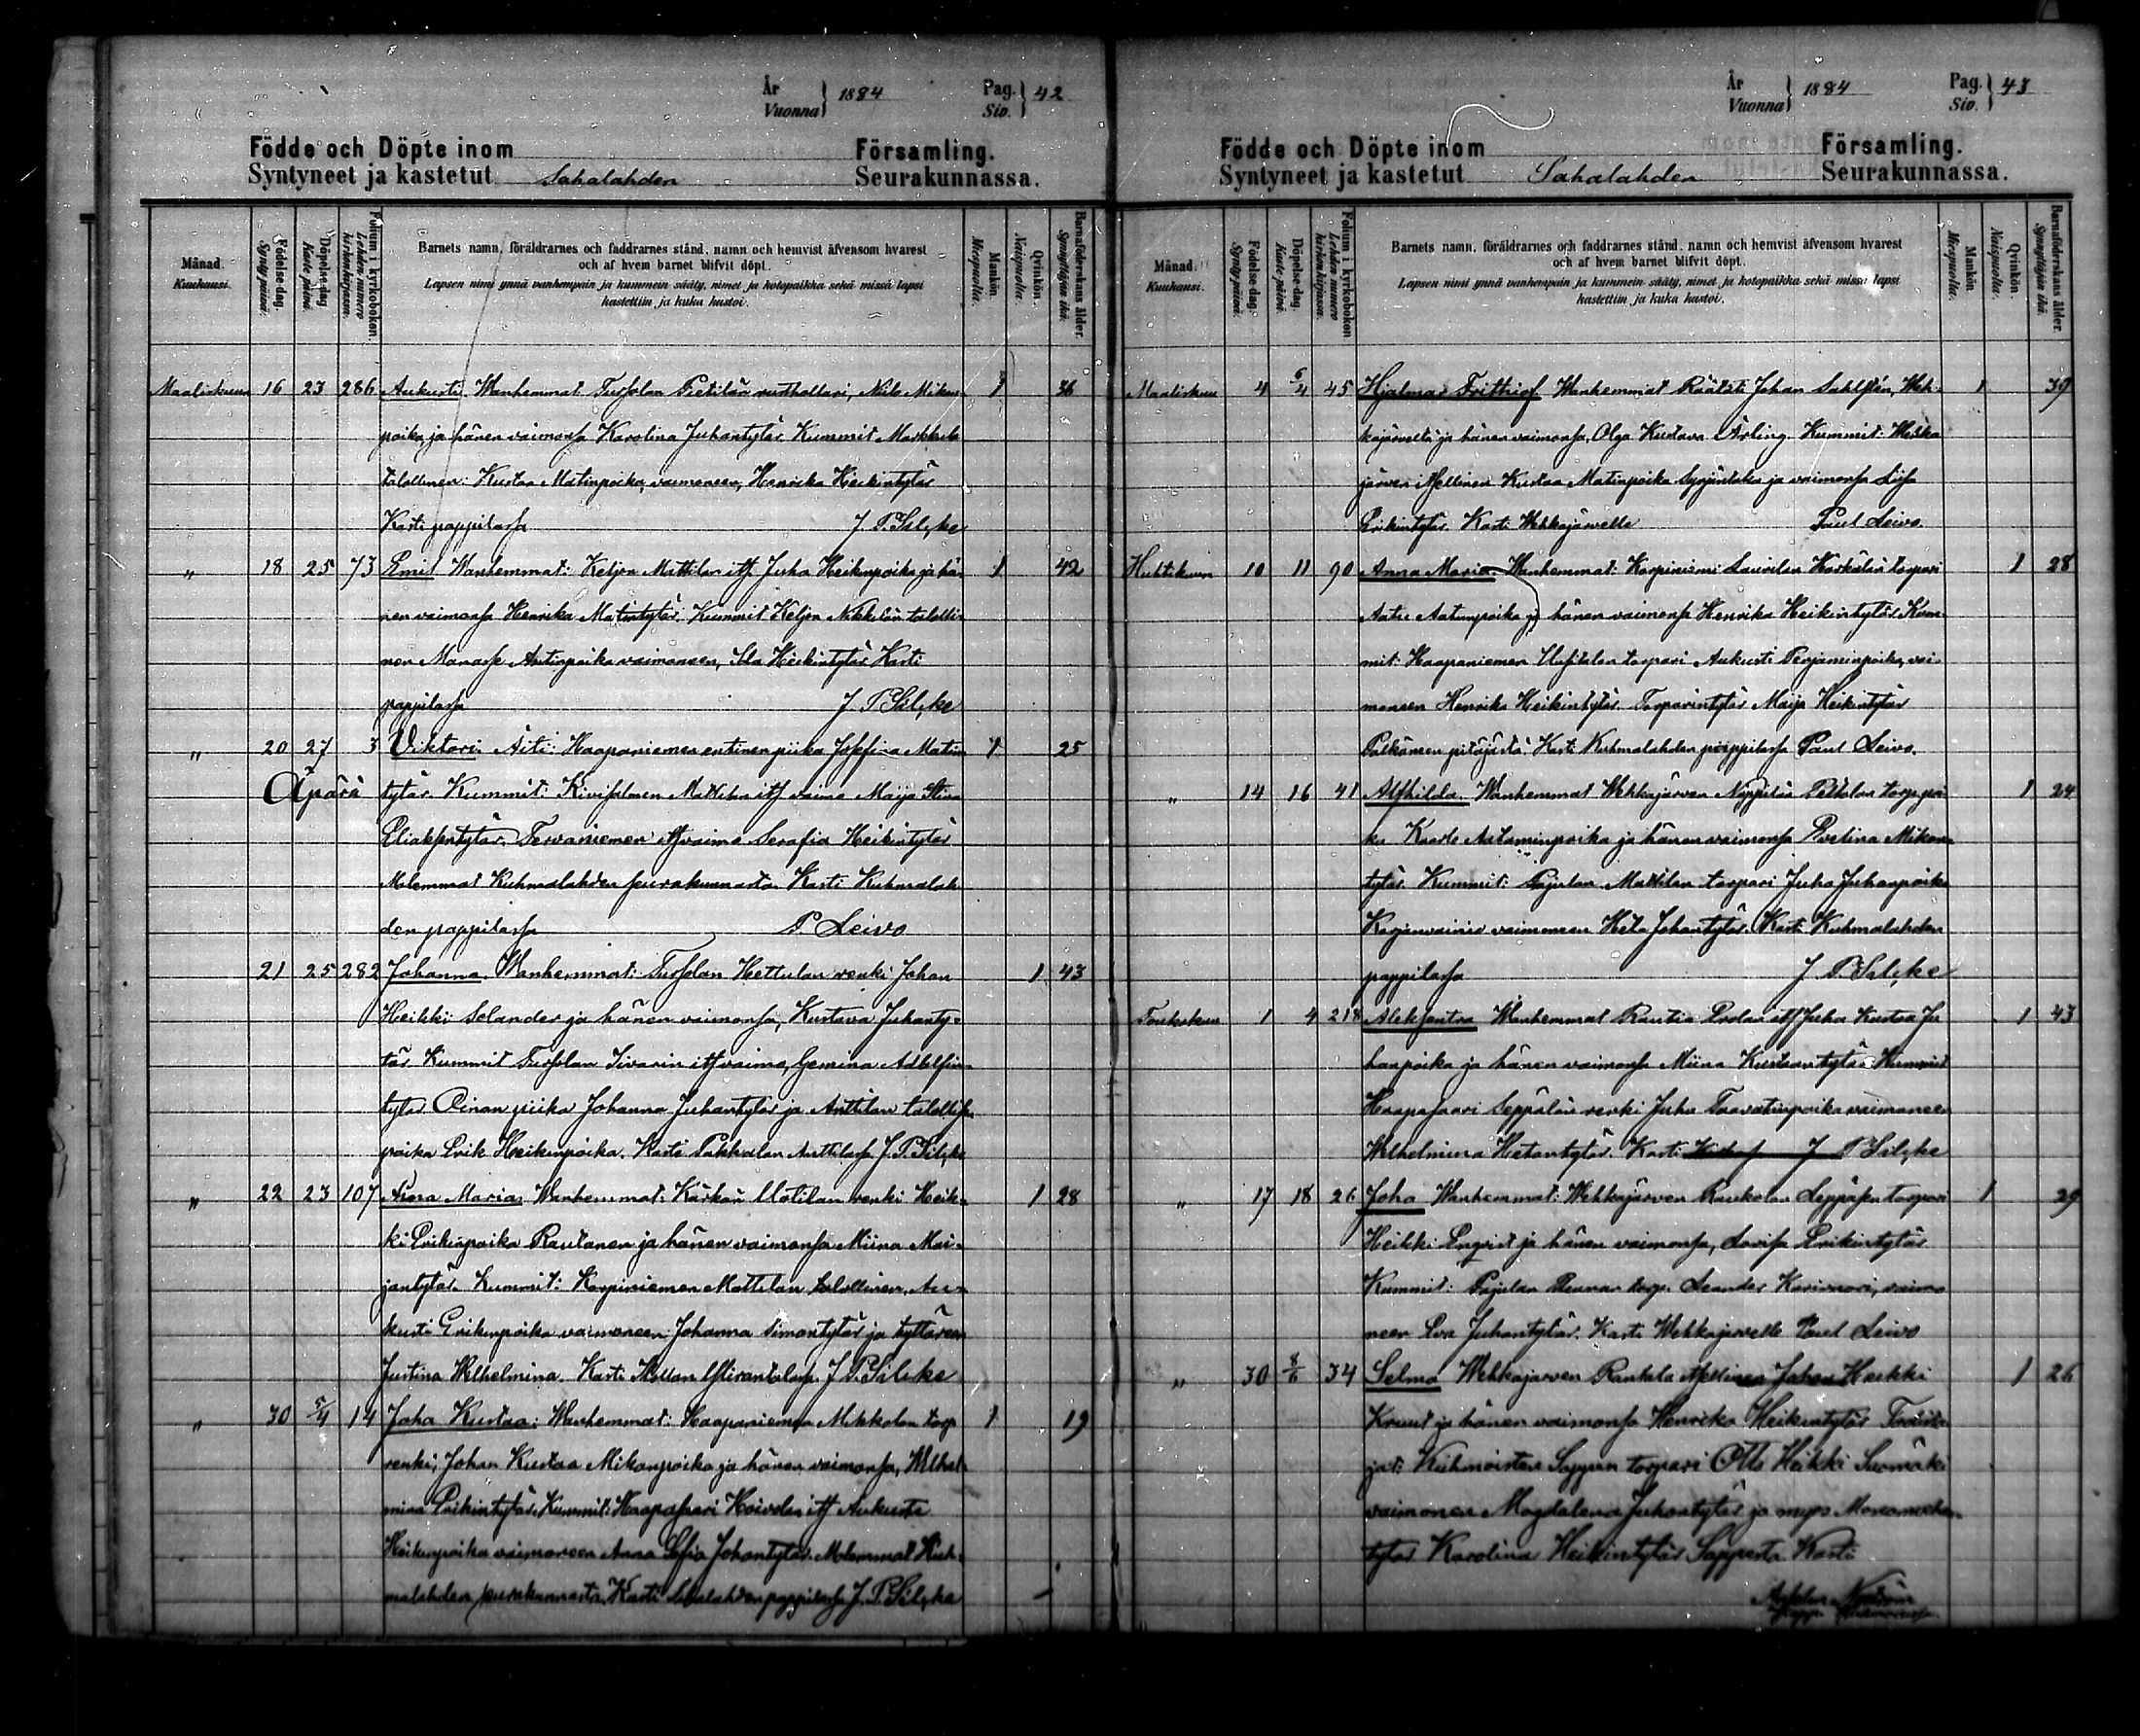 År
Vuonna } 1884
Pag.
Siv. } 42
Födde och Döpte inom Församling.
Syntyneet ja kastetut Sahalahden Seurakunnassa.
Månad. Kuukausi.
Födelse-dag. Synty-päivä.
Döpelse-dag. Kaste-päivä.
Folium i kyrkobokon. Lehden numero kirkonkirjassa.
Barnets namn, föräldrarnes och faddrarnes stånd, namn och hemvist äfvensom hvarest
och af hvem barnet blifvit döpt.
Lapsen nimi ynnä vanhempain ja kummein sääty, nimet ja kotopaikka sekä missä lapsi
kastettiin ja kuka kastoi.
Mankön. Miespuolta.
Qvinkön. Naispuolta.
Barnaföderskans ålder. Synnyttäjän ikä.
Maaliskuun 16 23 286 Aukusti Wanhemmat Tursolan Pietilän Niilo Mikon- 1 36
poika, ja hänen vaimonsa Karolina Juhantytär Kummit Markkola
talollinen: Kustaa Matinpoika, vaimoneen, Henrika Heikintytär
Kasti pappilassa J. P. Silcke
" 18 25 73 Emil Wanhemmat: Keljon Mattilan its. Juha Heikinpoika ja hä- 1 42
nen vaimonsa Henrika Matintytär, Kummit Keljon Nikkilän talolli-
nen Manasse Antinpoika vaimoneen, Ida Heikintytär Kasti
pappilassa J. P. Silcke
" 20 27 3 Viktori. Äiti: Haapaniemen entinen piika Josefina Matin 1 25
Äpärä tytär. Kummit: Kivisalmen Mattilan its vaimo Maija Stina
Eliaksentytär, Tervaniemen its vaimo Serafia Heikintytär
Molemmat Kuhmalahden seurakunnasta. Kasti Kuhmalah-
den pappilassa P. Leivo
21 25 282 Johanna. Wanhemmat: Tursolan Hettulan renki Johan 1 43
Heikki Selander ja hänen vaimonsa, Kustava Juhanty-
tär Kummit Tursolan Iivarin its vaimo, Gemina Adolfin-
tytär Oinan piika Johanna Juhantytär ja Anttilan talollisen
poika Erik Heikinpoika. Kasti Pakkalan Anttilassa J. P. Silcke
" 22 23 107 Anna Maria, Wanhemmat: Kärkön Uotilan renki Heik- 1 28
ki Erikinpoika Rautanen ja hänen vaimonsa Miina Mai-
jantytär. Kummit: Korpiniemen Mattilan talollinen, Au-
kusti Erikinpoika vaimoneen Johanna Simontytär ja tyttäreen
Justina Wilhelmina. Kasti J. P. Silcke
" 30 5/4 14 Joha Kustaa: Wanhemmat: Haapaniemen Mikkolan torp
renki, Johan Kustaa Mikonpoika ja hänen vaimonsa, Wilhel- 1 19
mina Erikintytär. Kummit: Haapasaari Hoivola its Aukusti
Heikinpoika vaimoneen Anna Sofia Johantytär. Molemmat Kuh-
malahden seurakunnasta. Kasti Sahalahden pappilassa J. P. Silcke
År
Vuonna } 1884
Pag.
Siv. } 43
Födde och Döpte inom Församling.
Syntyneet ja kastetut Sahalahden Seurakunnassa.
Månad. Kuukausi.
Födelse-dag. Synty-päivä.
Döpelse-dag. Kaste-päivä.
Folium i kyrkobokon. Lehden numero kirkonkirjassa.
Barnets namn, föräldrarnes och faddrarnes stånd, namn och hemvist äfvensom hvarest
och af hvem barnet blifvit döpt.
Lapsen nimi ynnä vanhempain ja kummein sääty, nimet ja kotopaikka sekä missä lapsi
kastettiin ja kuka kastoi.
Mankön. Miespuolta.
Qvinkön. Naispuolta.
Barnaföderskans ålder. Synnyttäjän ikä.
Maaliskuun 4 6/4 45 Hjalmar Frithiof Wanhemmat Räätäli Johan Sahlstén, Weh- 1 39
kajärveltä ja hänen vaimonsa, Olga Kustava Arling. Kummit: Wehka
järven itsellinen Kustaa Matinpoika Syrjäntaka ja vaimonsa Liisa
Erikintytär. Kasti Wehkajärvellä Paul Leivo.
Huhtikuun 10 11 90 Anna Maria. Wanhemmat: Korpiniemi Laurilan Kärkälän torpari 1 28
Antu Aatunpoika ja hänen vaimonsa Henrika Heikintytär. Kum-
mit: Haapaniemen Uusitalon torpari Aukusti Penjaminpoika, vai-
moneen Henrika Heikintytär Torparintytär Maija Heikintytär
Pälkäneen pitäjästä. Kasti Kuhmalahden pappilassa Paul Leivo.
" 14 16 41 Alfhilda Wanhemmat Wehkajärven Nippilän Peltolan torp.poi- 1 24
ka Kaarlo Aataminpoika ja hänen vaimonsa Evelina Mikon-
tytär. Kummit: Pajulan Mattilan torpari Juha Juhanpoika
Karjanvainio vaimoneen Heta Johantytär. Kasti Kuhmalahden
pappilassa J. P. Silcke
Toukokuun 1 4 218 Aleksantra Wanhemmat Rautia Erolan its Juha Kustaa Ju 1 43
hanpoika ja hänen vaimonsa Miina Kustaantytär Kummit
Haapasaari Seppälän renki Juha Taavetinpoika vaimoneen
Wilhelmina Hetantytär. Kasti J. P. Silcke
" 17 18 26 Joha Wanhemmat: Wehkajärven Raukolan Leppäsen torpari 1 29
Heikki Engvist ja hänen vaimonsa, Lovisa Erikintytär
Kummit: Pajulan torp. Leander Korivuori, vaimo
neen Eva Juhantytär. Kasti Wehkajärvellä Paul Leivo
" 30 8/6 34 Selma Wehkajärven Rantala itsellinen Johan Heikki 1 26
Kruut ja hänen vaimonsa Henrika Heikintytär
jat: Kuhmoisten Sappeen torpari Otto Heikki Suomäki
vaimoneen Magdalena Juhantytär ja myös
tytär Karolina Heikintytär Sappeesta Kasti